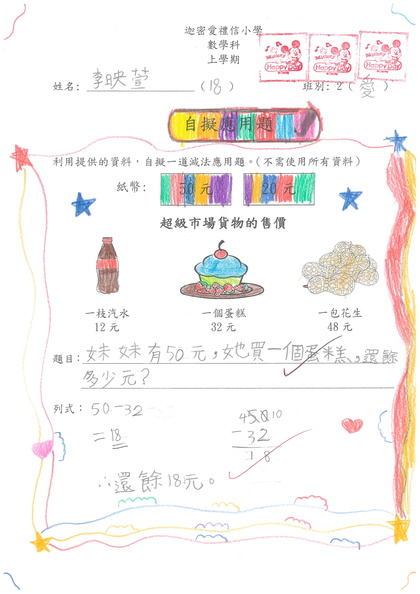 迦密愛禮信小學
數學科
上學期
姓名: 李映萱 (18) 班別: 2 (愛)
自擬應用題
利用提供的資料，自擬一道減法應用題。(不需使用所有資料)
紙幣: 50 元 20 元
超級市場貨物的售價
一枝汽水 一個蛋糕 一包花生
12 元 32 元 48 元
題目: 妹妹有50元，她買一個蛋糕，還餘
多少元？
列式: 50-32
=18
4 5010
-32
18
∴還餘18元。